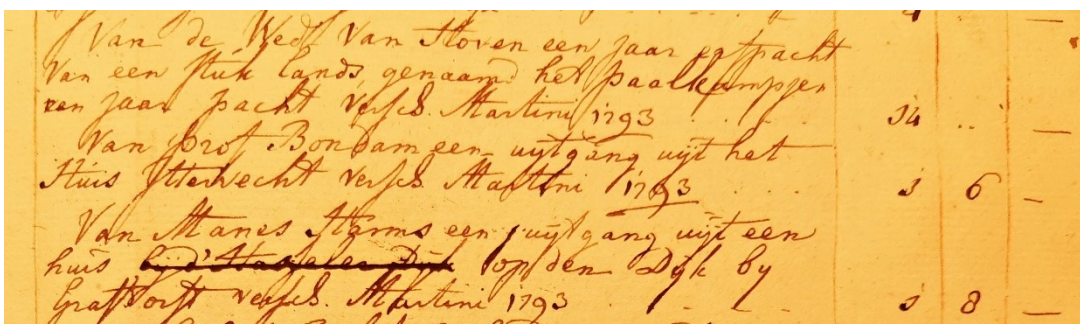 4 —
Van de Wed. Van Hoven een jaar erfpacht
Van een stuk lands, genaamd het paalkampjen
een jaar pacht versch. Martini 1793 . . . . 34 .. —
Van Prof Bondam een uytgang uyt het
Huis Utterwecht versch. Martini 1793 . . . 3 6 —
Van Manes Harms een uytgang uyt een
huis op den Dyk by
Grafhorst versch. Martini 1793 . - . - . 3 8 —